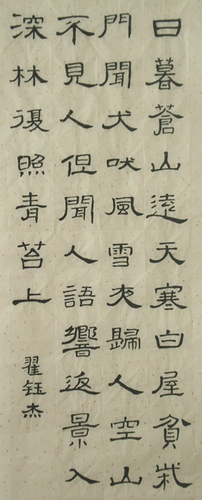 日暮蒼山遠天寒白屋貧柴
門聞犬吠風雪夜歸人空山
不見人但聞人語響返景入
深林復照青苔上
翟鈺杰